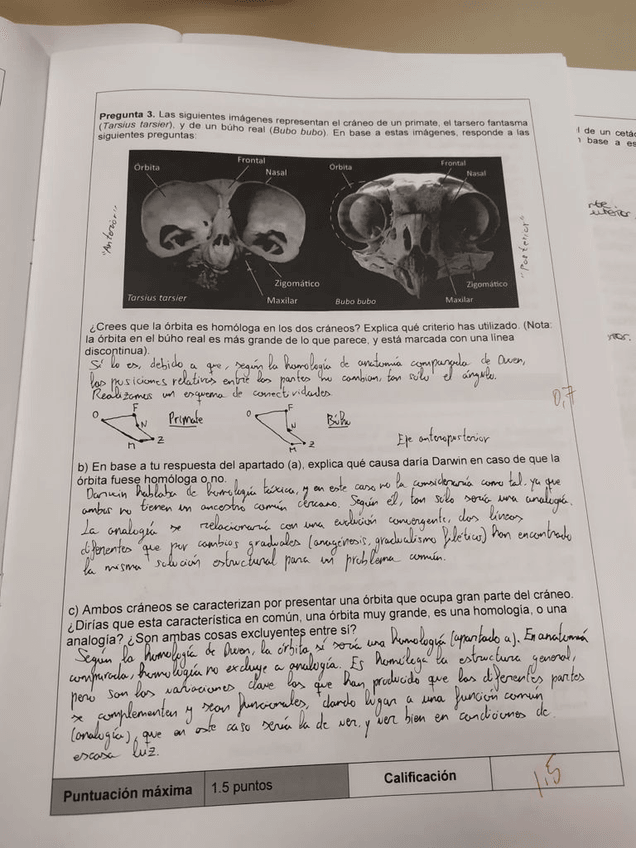 Pregunta 3. Las siguientes imágenes representan el cráneo de un primate, el tarsero fantasma
(Tarsius tarsier), y de un búho real (Bubo bubo). En base a estas imágenes, responde a las
siguientes preguntas:
Órbita
Frontal
Nasal
Zigomático
Maxilar
Tarsius tarsier
"Anterior"
Órbita
Frontal
Nasal
Zigomático
Maxilar
Bubo bubo
"Posterior"
¿Crees que la órbita es homóloga en los dos cráneos? Explica qué criterio has utilizado. (Nota:
la órbita en el búho real es más grande de lo que parece, y está marcada con una línea
discontinua).
Sí lo es, debido a que, según la homología de anatomía comparada de Owen,
las posiciones relativas entre las partes no cambian, tan sólo el ángulo.
Realizamos un esquema de conectividades
0,7
O F N Z M Primate
O F N Z M Búho
Eje anteroposterior
b) En base a tu respuesta del apartado (a), explica qué causa daría Darwin en caso de que la
órbita fuese homóloga o no.
Darwin hablaba de homología táxica, y en este caso no la consideraría como tal, ya que
ambas no tienen un ancestro común cercano. Según él, tan solo sería una analogía.
La analogía se relacionaría con una evolución convergente, dos líneas
diferentes que por cambios graduales (anagénesis, gradualismo filético) han encontrado
la misma solución estructural para un problema común.
c) Ambos cráneos se caracterizan por presentar una órbita que ocupa gran parte del cráneo.
¿Dirías que esta característica en común, una órbita muy grande, es una homología, o una
analogía? ¿Son ambas cosas excluyentes entre sí?
Según la homología de Owen, la órbita sí sería una homología (apartado a). En anatomía
comparada, homología no excluye a analogía. Es homóloga la estructura general,
pero son las variaciones clave las que han producido que las diferentes partes
se complementen y sean funcionales, dando lugar a una función común
(analogía), que en este caso sería la de ver, y ver bien en condiciones de
escasa luz.
Puntuación máxima 1.5 puntos Calificación 1,5
l de un cetá
n base a es